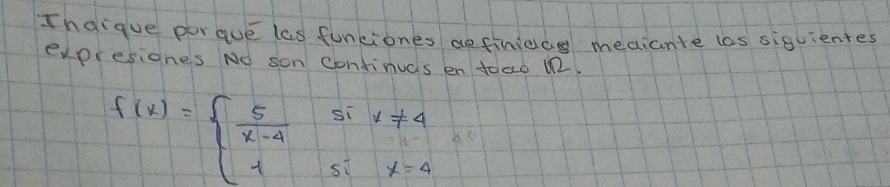 Indique por qué las funciones definidas mediante las siguientes
expresiones No son continuas en todo ℝ.
f(x) = { 5/(x-4) si x ≠ 4
1 si x = 4